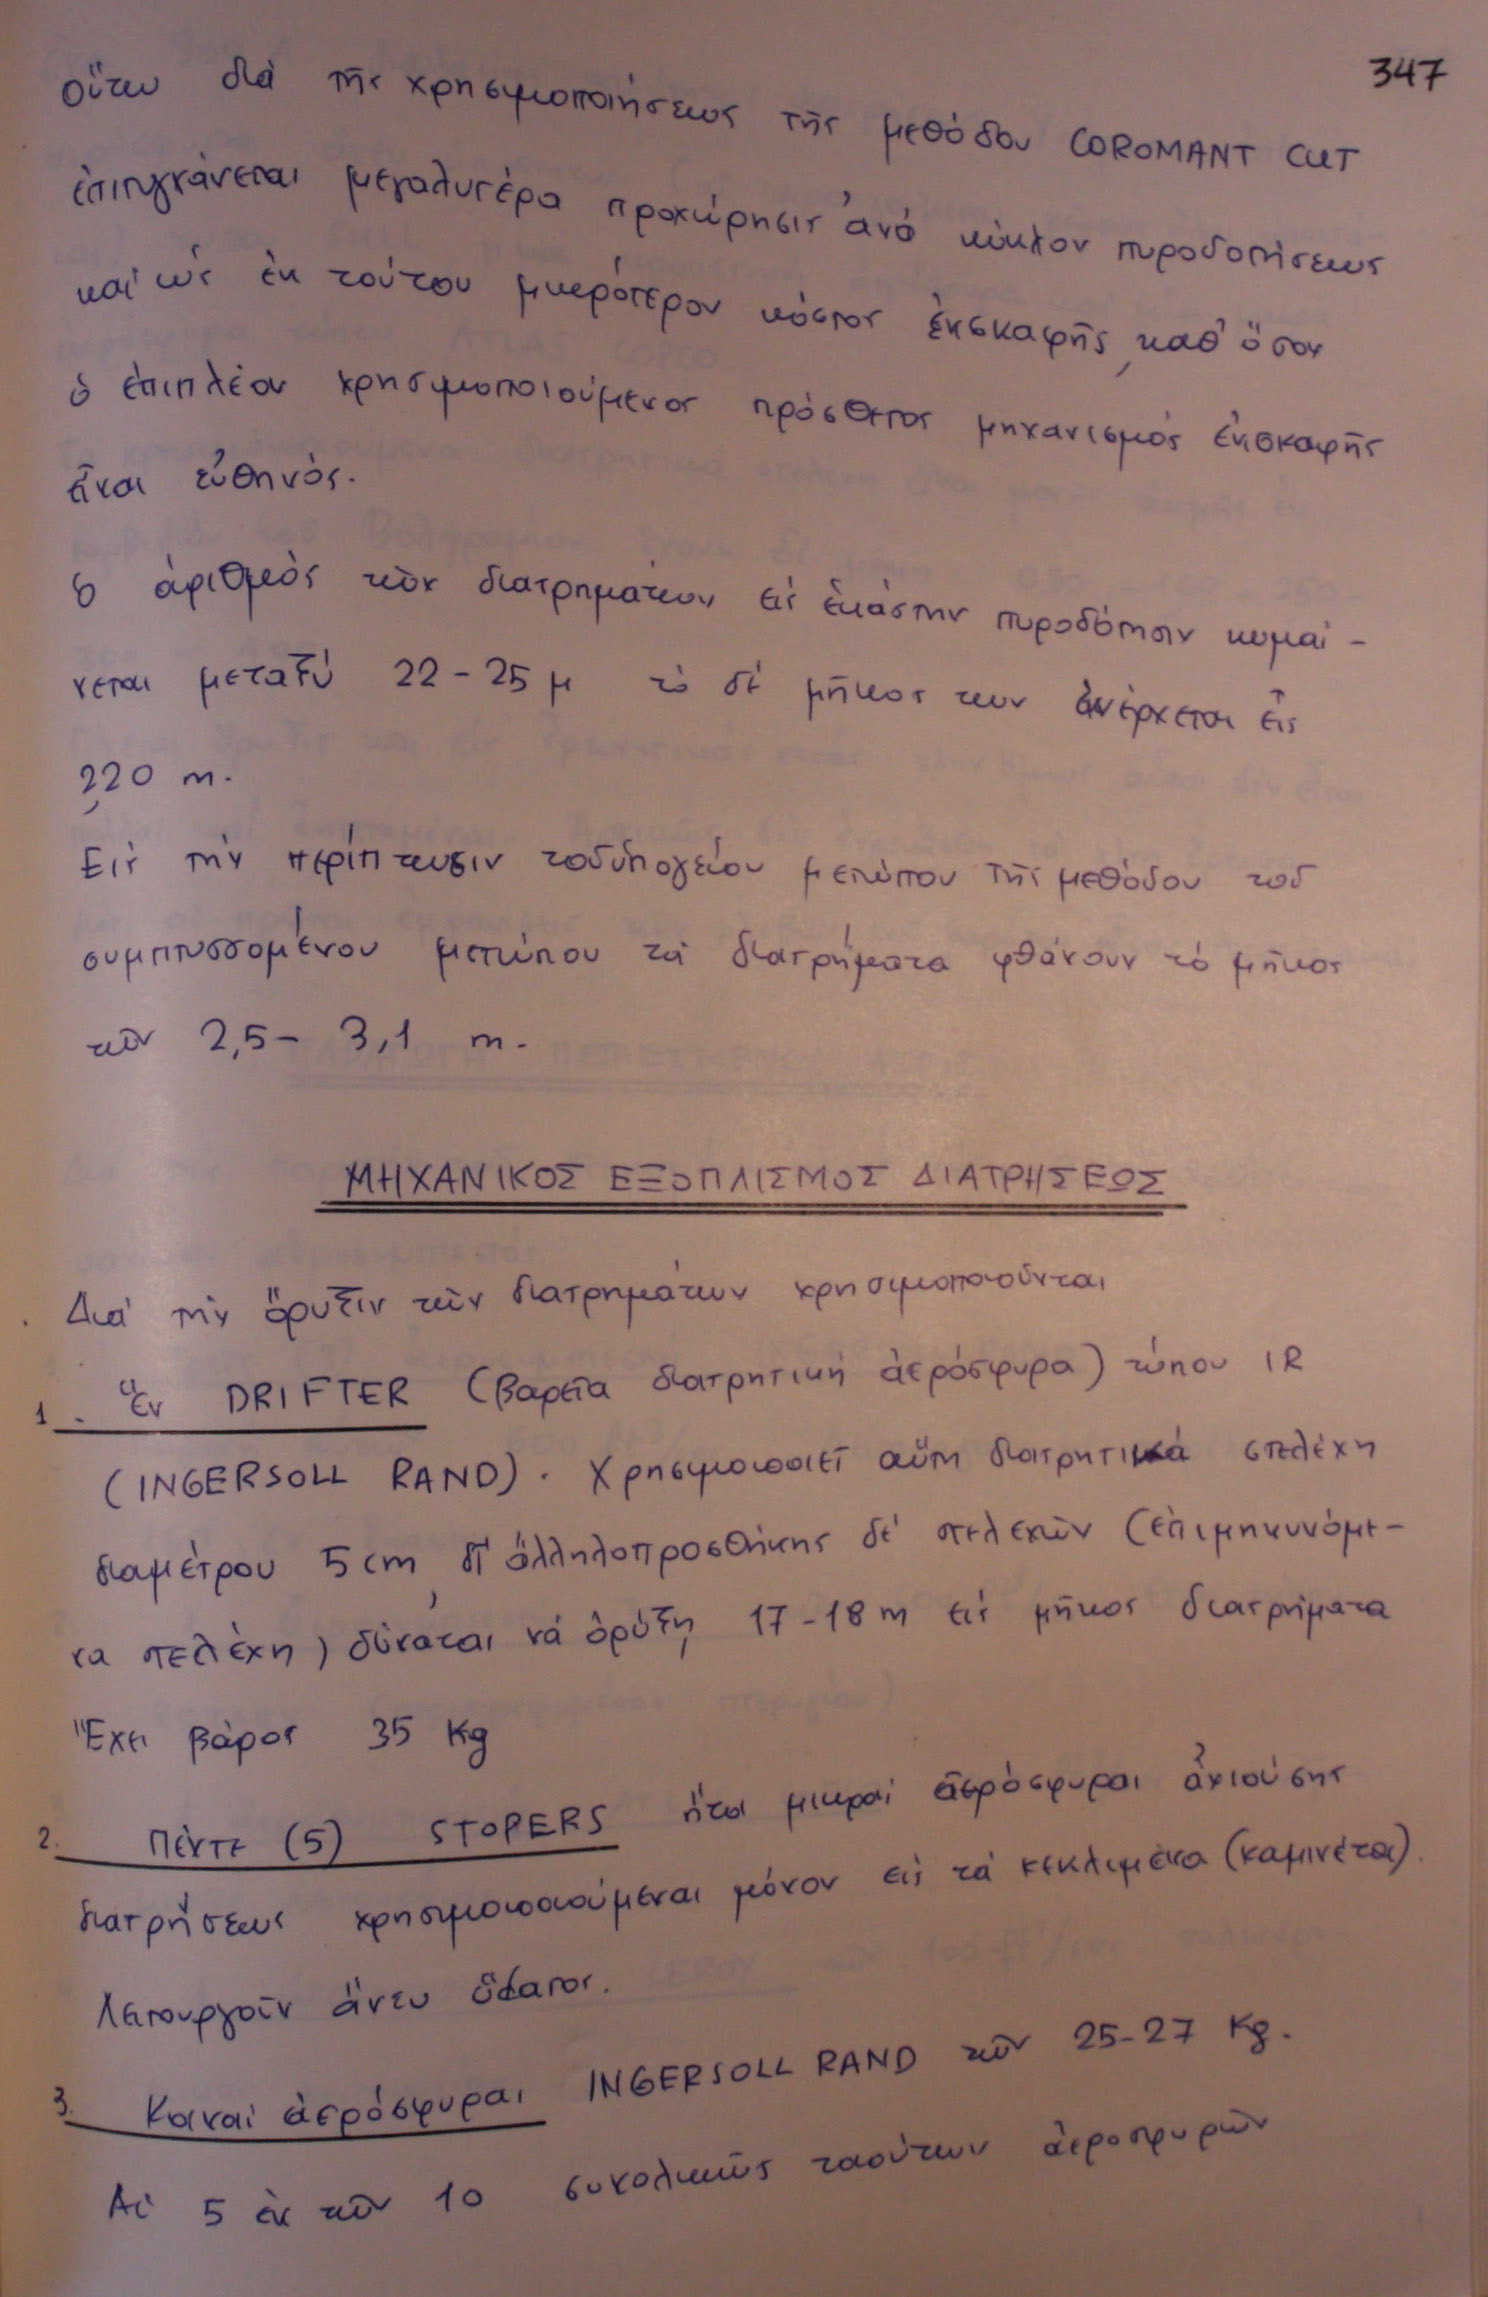 347
οὕτω διὰ τῆς χρησιμοποιήσεως τῆς μεθόδου COROMANT CUT
ἐπιτυγχάνεται μεγαλυτέρα προχώρησις ἀνὰ κύκλον πυροδοτήσεως
καὶ ὡς ἐκ τούτου μικρότερον κόστος ἐκσκαφῆς, καθ' ὅσον
ὁ ἐπιπλέον χρησιμοποιούμενος πρόσθετος μηχανισμὸς ἐκσκαφῆς
εἶναι εὐθηνός.
ὁ ἀριθμὸς τῶν διατρημάτων εἰς ἑκάστην πυροδότησιν κυμαί-
νεται μεταξὺ 22-25 μ τὸ δὲ μῆκος των ἀνέρχεται εἰς
2,20 m.
Εἰς τὴν περίπτωσιν τοῦ ὑπογείου μετώπου τῆς μεθόδου τοῦ
συμπτυσσομένου μετώπου τὰ διατρήματα φθάνουν τὸ μῆκος
τῶν 2,5 - 3,1 m.
ΜΗΧΑΝΙΚΟΣ ΕΞΟΠΛΙΣΜΟΣ ΔΙΑΤΡΗΣΕΩΣ
Διὰ τὴν ὄρυξιν τῶν διατρημάτων χρησιμοποιοῦνται
1. Ἕν DRIFTER (βαρεῖα διατρητικὴ ἀερόσφυρα) τύπου IR
(INGERSOLL RAND). Χρησιμοποιεῖ αὕτη διατρητικὰ στελέχη
διαμέτρου 5 cm, δι' ἀλληλοπροσθήκης δὲ στελεχῶν (ἐπιμηκυνόμε-
να στελέχη) δύναται νὰ ὀρύξῃ 17-18 m εἰς μῆκος διατρήματα
Ἔχει βάρος 35 Kg
2. Πέντε (5) STOPERS ἤτοι μικραὶ ἀερόσφυραι ἀνιούσης
διατρήσεως χρησιμοποιούμεναι μόνον εἰς τὰ κεκλιμένα (καμινέτα).
Λειτουργοῦν ἄνευ ὕδατος.
3. Κοιναὶ ἀερόσφυραι INGERSOLL RAND τῶν 25-27 Kg.
Αἱ 5 ἐκ τῶν 10 συνολικῶς τοιούτων ἀεροσφυρῶν